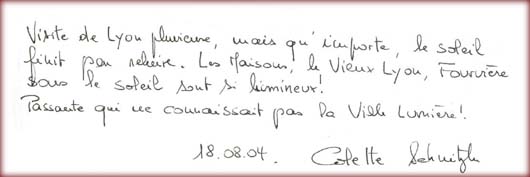 Visite de Lyon pluvieuse, mais qu'importe, le soleil
finit par reluire. Les Maisons, le Vieux Lyon, Fourvière
sous le soleil sont si lumineux!
Passante qui ne connaissait pas la Ville Lumière!
18.08.04. Colette